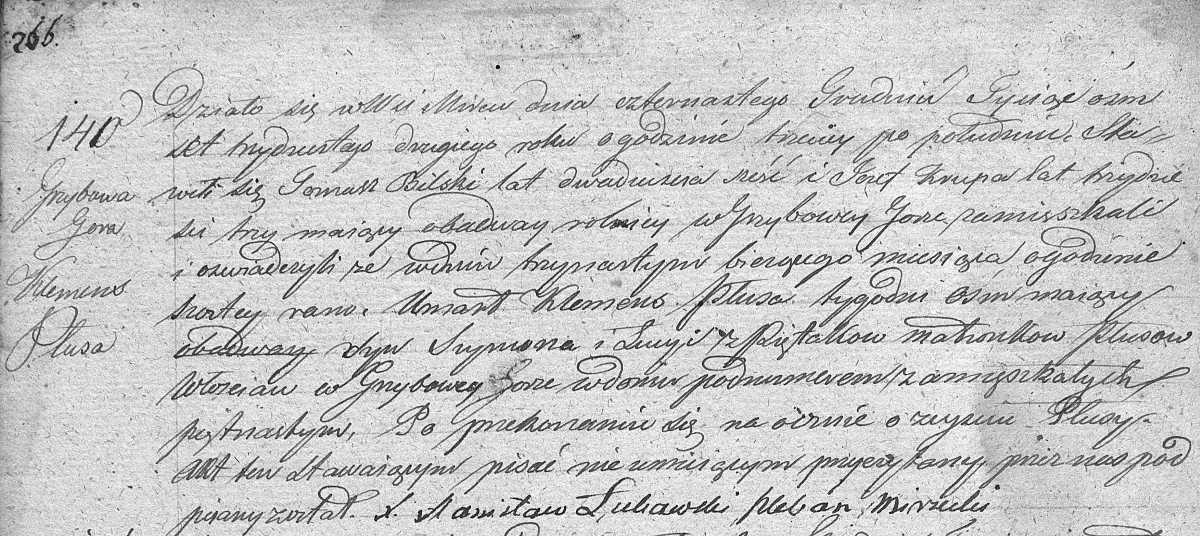 266.
140
Grzybowa
Gora
Klemens
Plusa
Działo się w Wsi Mircu dnia czternastego Grudnia Tysiąc ośm
set trzydziestego drugiego roku o godzinie trzeciey po południu. Sta=
wili się Tomasz Bilski lat dwadzieścia sześć i Jozef Krupa lat trzydzie
sci trzy maiący obadway rolnicy w Grzybowey Gorze zamięszkali
i oświadczyli że w dniu trzynastym bieżącego miesiąca o godzinie
szostey rano, Umarł Klemens Plusa tygodni ośm maiący
obadway syn Szymona i Łucyi z Piętakow małżonkow Plusow
Włościan w Grzybowey Gorze w domu pod numerem zamięszkałych
piętnastym, Po przekonaniu się na ocznie o zeyściu Plusy
Akt ten stawaiącym pisać nie umieiącym przeczytany, przez nas pod
pisany został. X. Stanisław Pleban Mirzecki